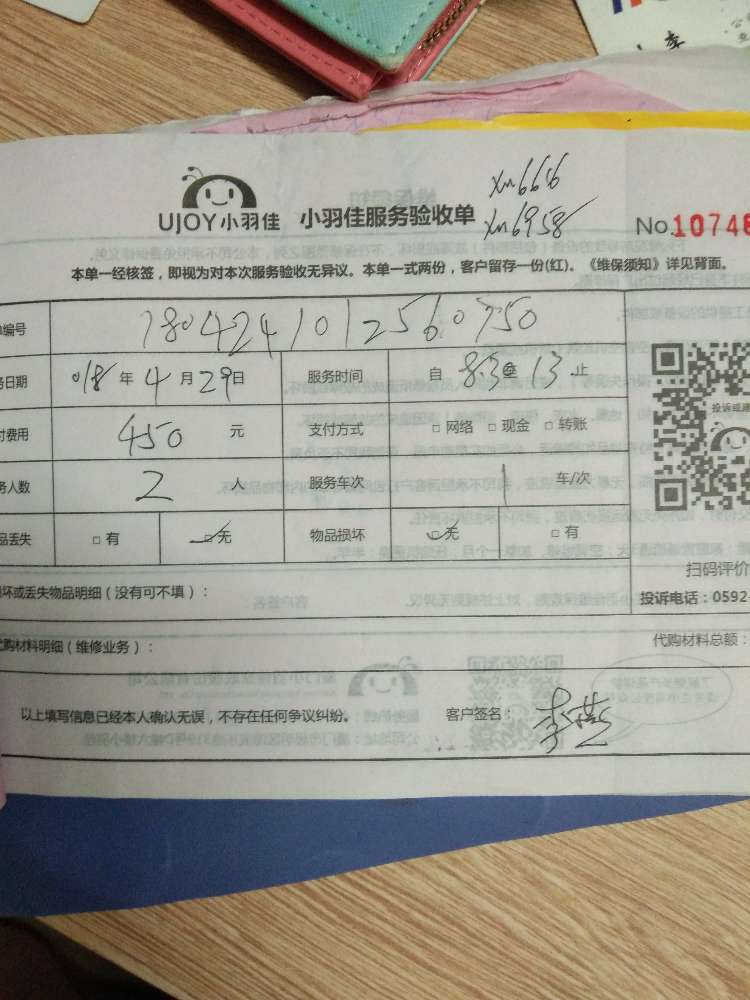 xm6616
UJOY小羽佳 小羽佳服务验收单 xm6958 No.10746
本单一经核签，即视为对本次服务验收无异议。本单一式两份，客户留存一份(红)。《维保须知》详见背面。
编号 1804241012560750
日期 018年4月29日 服务时间 自 8:30至13止
付费用 450 元 支付方式 □网络 □现金 □转账
务人数 2 人 服务车次 1 车/次
品丢失 □有 □无 物品损坏 □无 □有
投诉或建
扫码评价
坏或丢失物品明细（没有可不填）：
投诉电话：0592-
代购材料明细（维修业务）：
代购材料总额：
以上填写信息已经本人确认无误，不存在任何争议纠纷。 客户签名：李燕